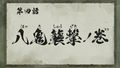 第四話
八亀襲撃ノ巻